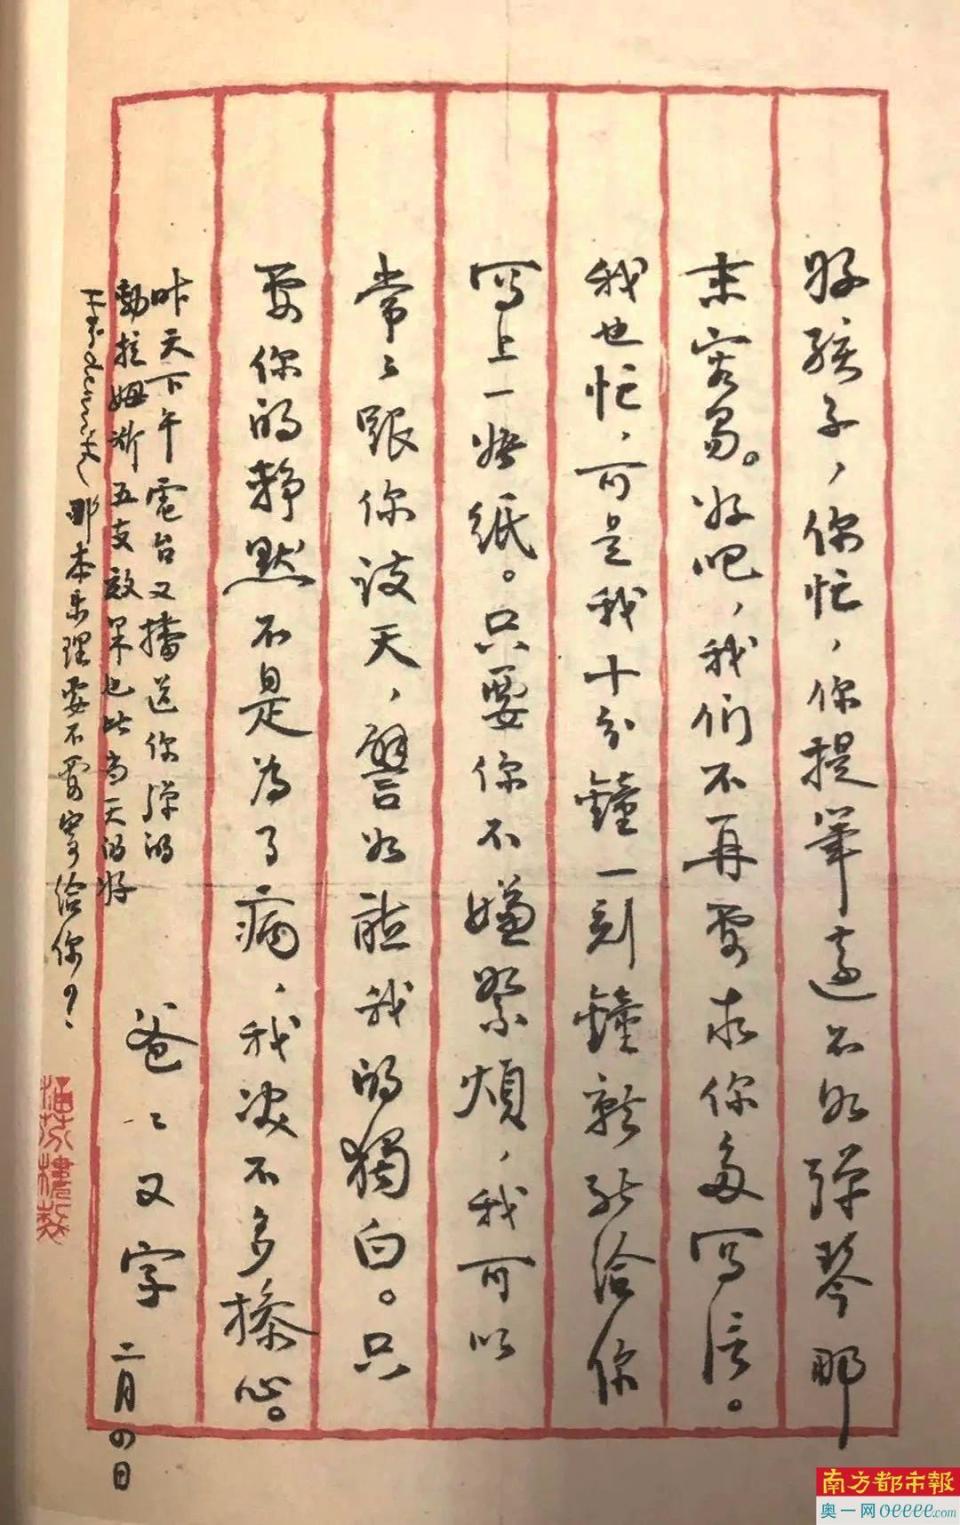 好孩子，你忙，你提筆遠不如彈琴那
末容易。好吧，我们不再要求你多写信。
我也忙，可是我十分鐘一刻鐘就能给你
写上一張紙。只要你不嫌累烦，我可以
常々跟你谈天，譬如聽我的獨白。只
要你的靜默不是為了病，我决不多操心。
爸々又字 二月四日
昨天下午電台又播送你弹的
勃拉姆斯五支效果也比当天的好
那本乐理要不要寄给你？
南方都市報
奥一网oeeee.com